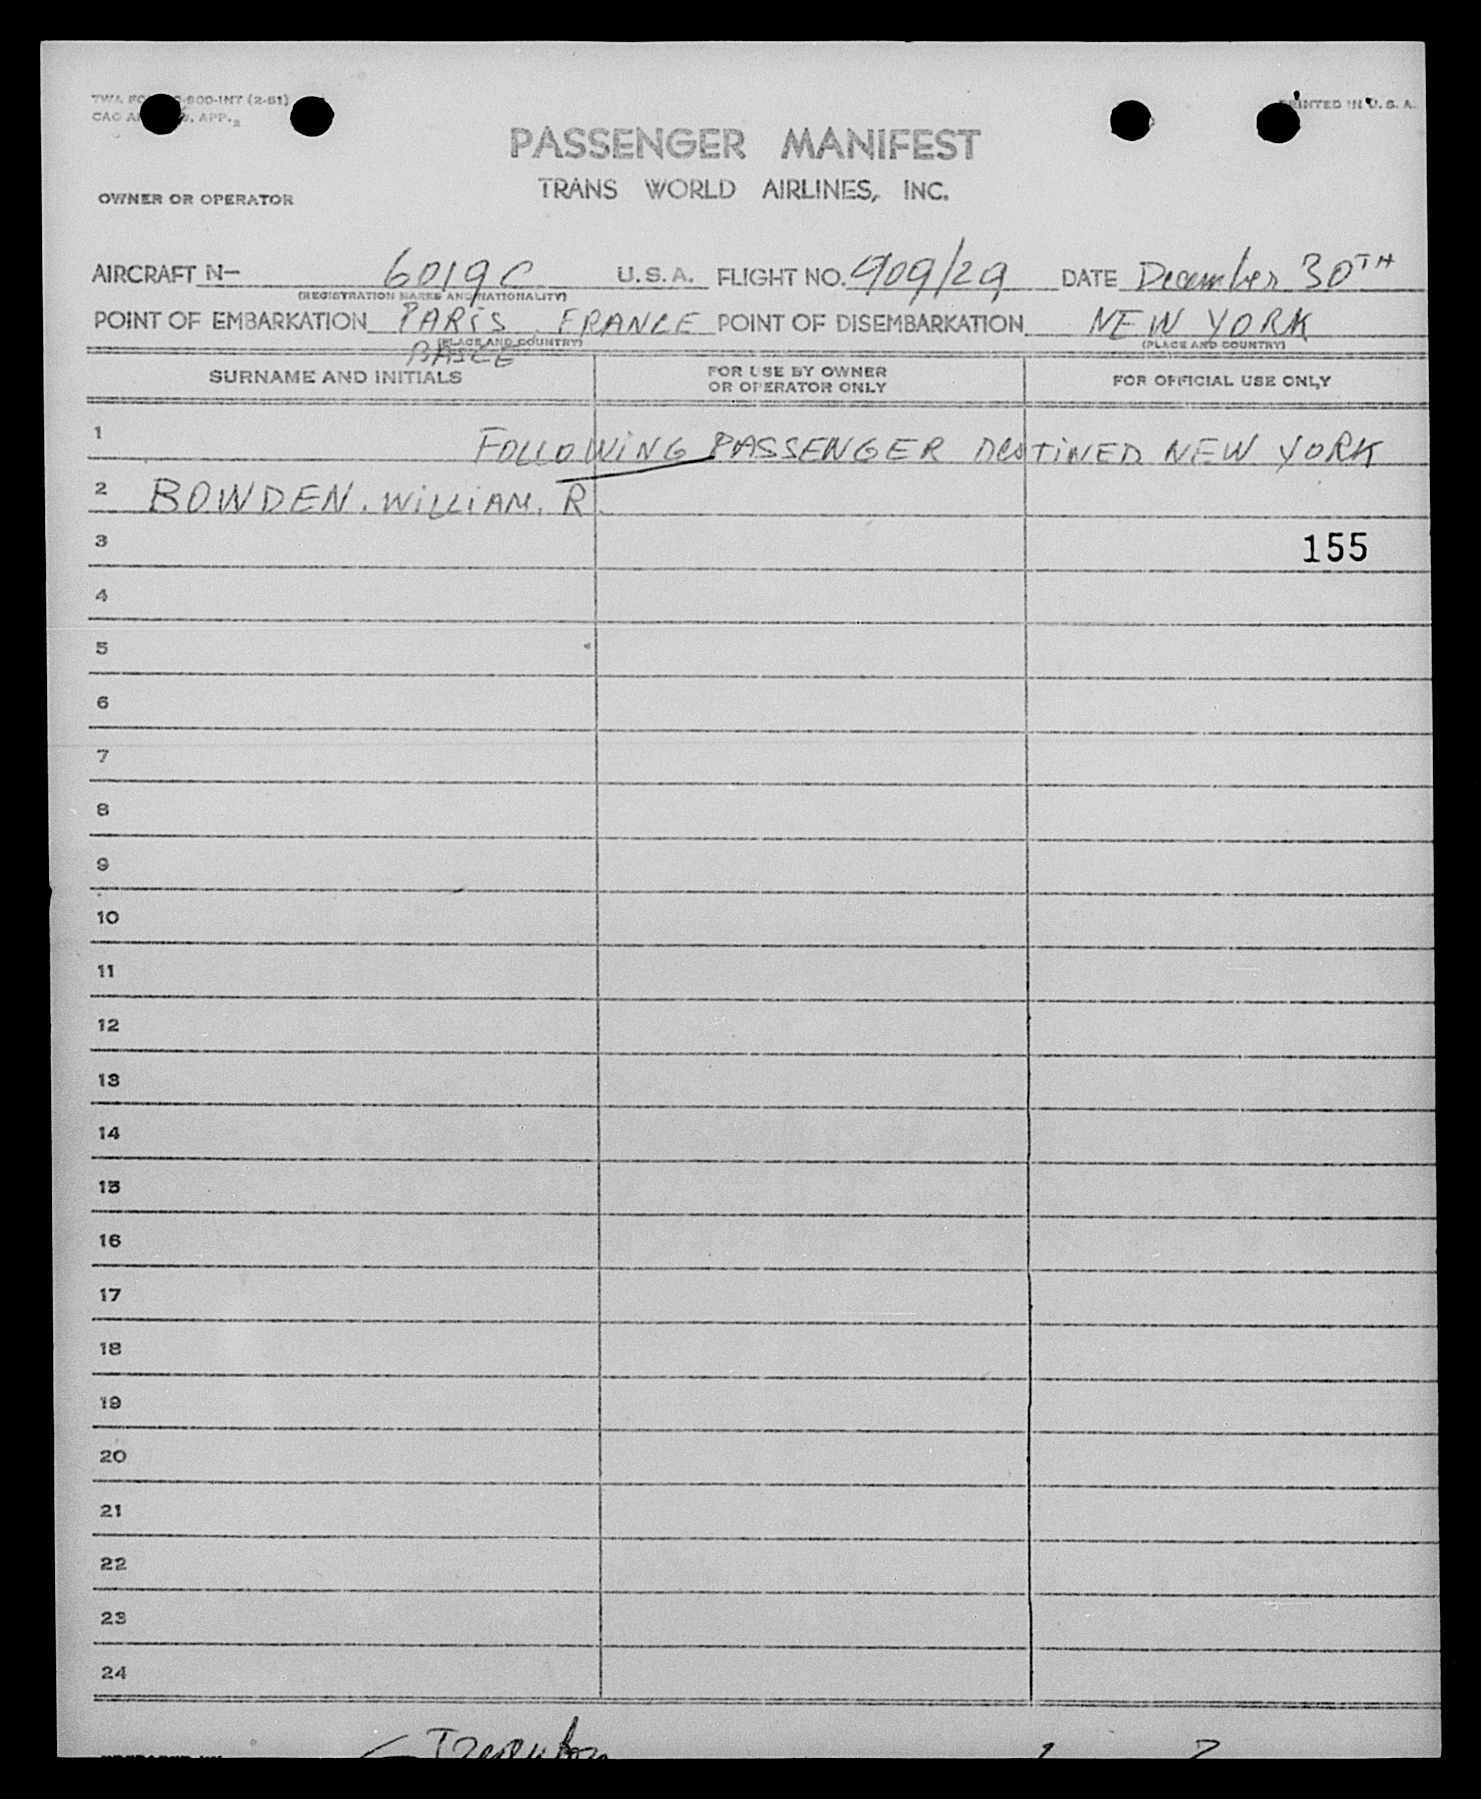 -800-INT (2-51)
PRINTED IN U. S. A.
CAO
APP.
PASSENGER MANIFEST
TRANS WORLD AIRLINES, INC.
OWNER OR OPERATOR
AIRCRAFT N- 6019C U.S.A. FLIGHT NO. 909/29 DATE December 30TH
(REGISTRATION MARKS AND NATIONALITY)
POINT OF EMBARKATION PARIS, FRANCE POINT OF DISEMBARKATION NEW YORK
(PLACE AND COUNTRY) (PLACE AND COUNTRY)
SURNAME AND INITIALS
FOR USE BY OWNER
OR OPERATOR ONLY
FOR OFFICIAL USE ONLY
1 FOLLOWING PASSENGER DESTINED NEW YORK
2 BOWDEN. WILLIAM. R.
3 155
4
5
6
7
8
9
10
11
12
13
14
15
16
17
18
19
20
21
22
23
24